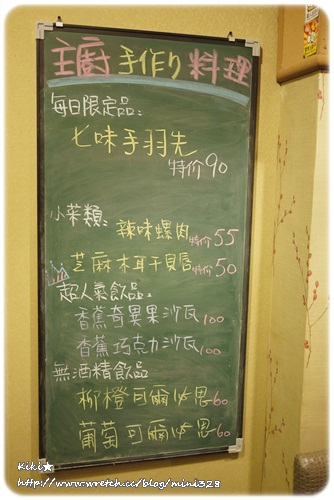 主廚手作り料理
每日限定品:
七味手羽先
特价90
小菜類:
辣味螺肉特价55
芝麻木耳干貝唇特价50
超人氣飲品:
香蕉奇異果沙瓦100
香蕉巧克力沙瓦100
無酒精飲品
柳橙可爾必思60
葡萄可爾必思60
Kiki★
http://www.wretch.cc/blog/mini328